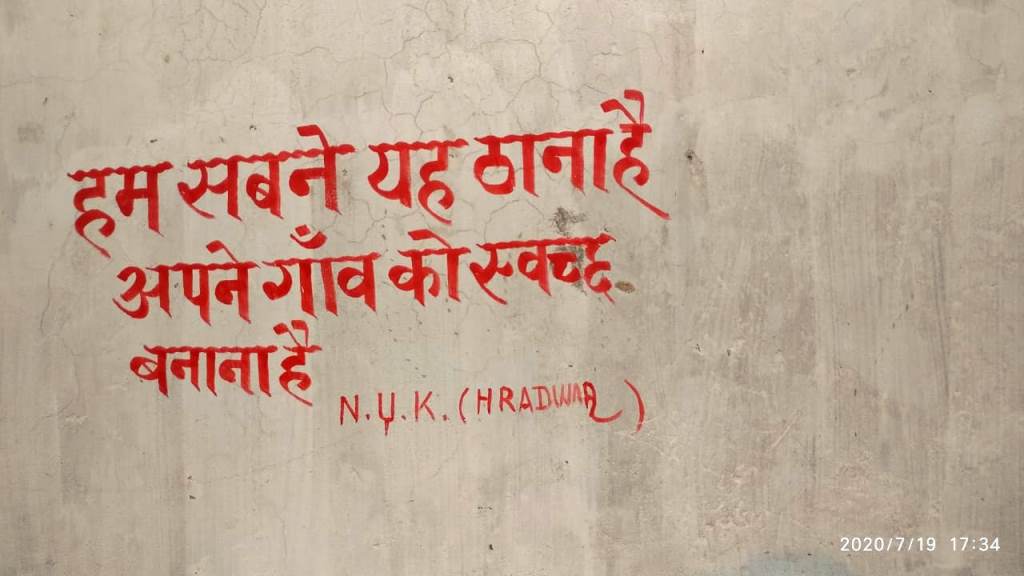 हम सबने यह ठाना है
अपने गाँव को स्वच्द्द
बनाना है
N.Y.K. (HRADWAR)
2020/7/19 17:34